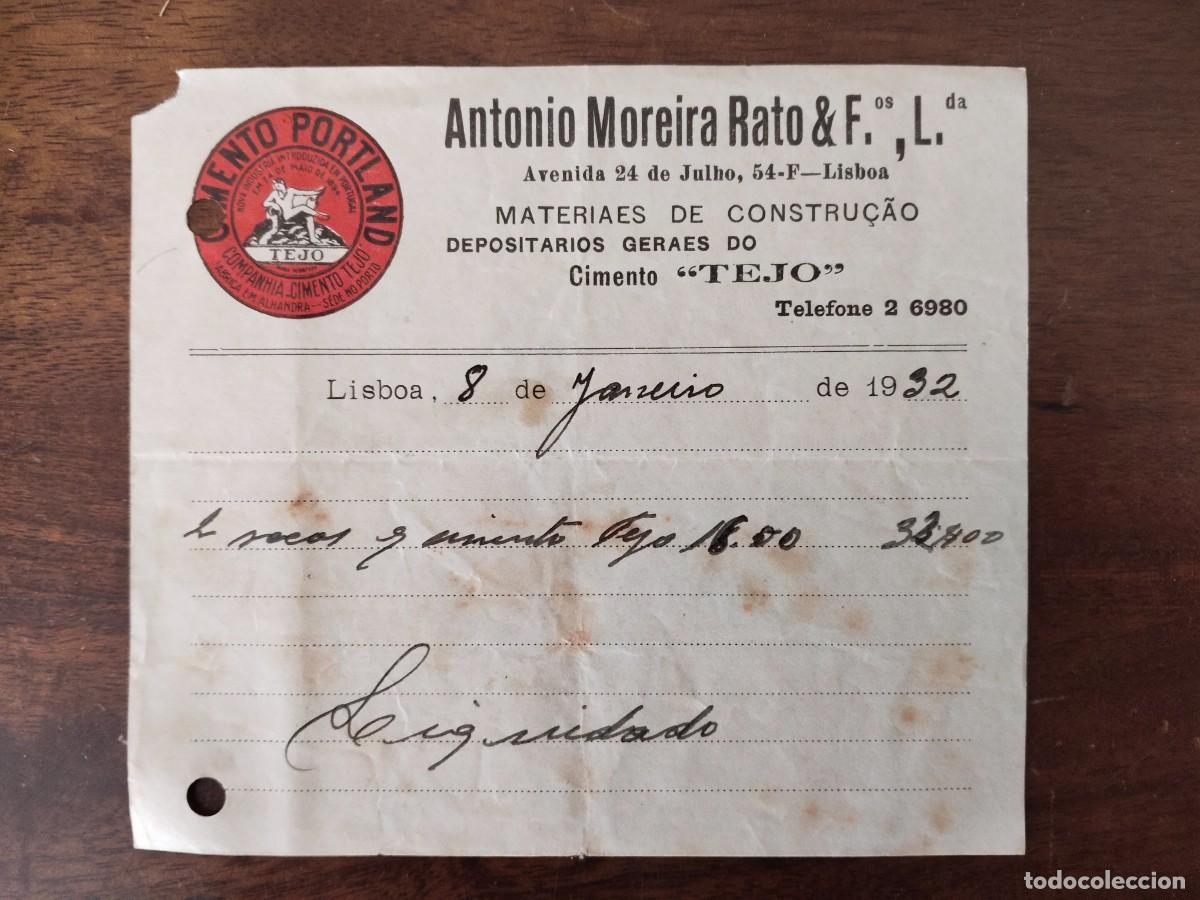 CIMENTO PORTLAND
NOVA INDUSTRIA INTRODUZIDA EM PORTUGAL
EM 24 DE MAIO DE 1894
TEJO
COMPANHIA CIMENTO TEJO
FABRICA EM ALHANDRA--SÉDE NO PORTO
Antonio Moreira Rato & F.os, L.da
Avenida 24 de Julho, 54-F—Lisboa
MATERIAES DE CONSTRUÇÃO
DEPOSITARIOS GERAES DO
Cimento "TEJO"
Telefone 2 6980
Lisboa, 8 de Janeiro de 1932
2 sacos cimento Tejo 16.00 32$00
Liquidado
todocoleccion